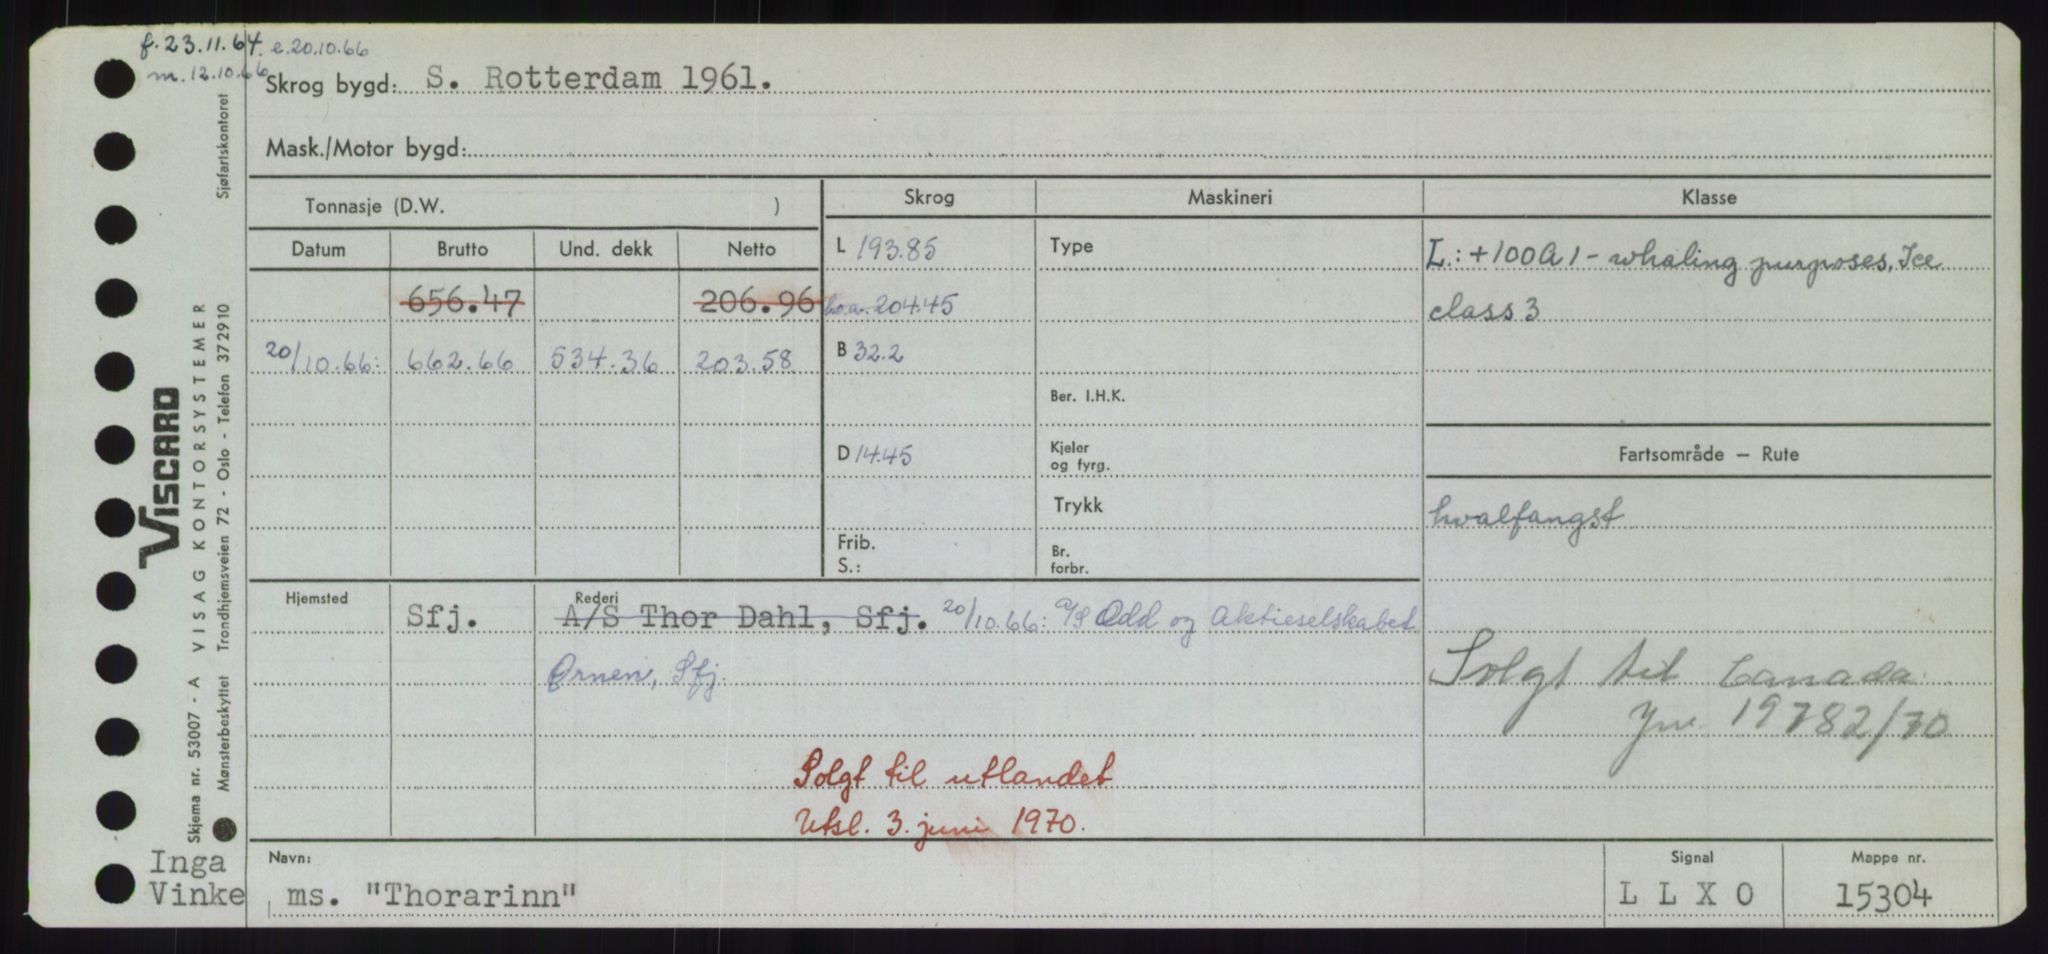 f. 23.11.64. e. 20.10.66
m. 12.10.66
Skrog bygd: S. Rotterdam 1961.
Mask./Motor bygd:
Tonnasje (D.W. )
Skrog Maskineri Klasse
Datum Brutto Und. dekk Netto
L 193.85 Type L.: +100A1 - whaling purposes, Ice
656.47 206.96 204.45 class 3
20/10.66: 662.66 534.36 203.58 B 32.2
Ber. I.H.K.
D 14.45 Kjeler
og fyrg.
Fartsområde — Rute
Trykk hvalfangst
Frib.
S.:
Br.
forbr.
Hjemsted Rederi
Sfj. A/S Thor Dahl, Sfj. 20/10.66: A/S Odd og Aktieselskabet
Ørnen, Sfj.
Solgt til Canada.
Jnr. 19782/70
Solgt til utlandet
Utsl. 3. juni 1970.
Inga
Vinke
Navn: Signal Mappe nr.
ms. "Thorarinn" L L X O 15304
Skjema nr. 53007 - A VISAG KONTORSYSTEMER
VISCARD
Mønsterbeskyttet Trondhjemsveien 72 - Oslo - Telefon 372910 Sjøfartskontoret